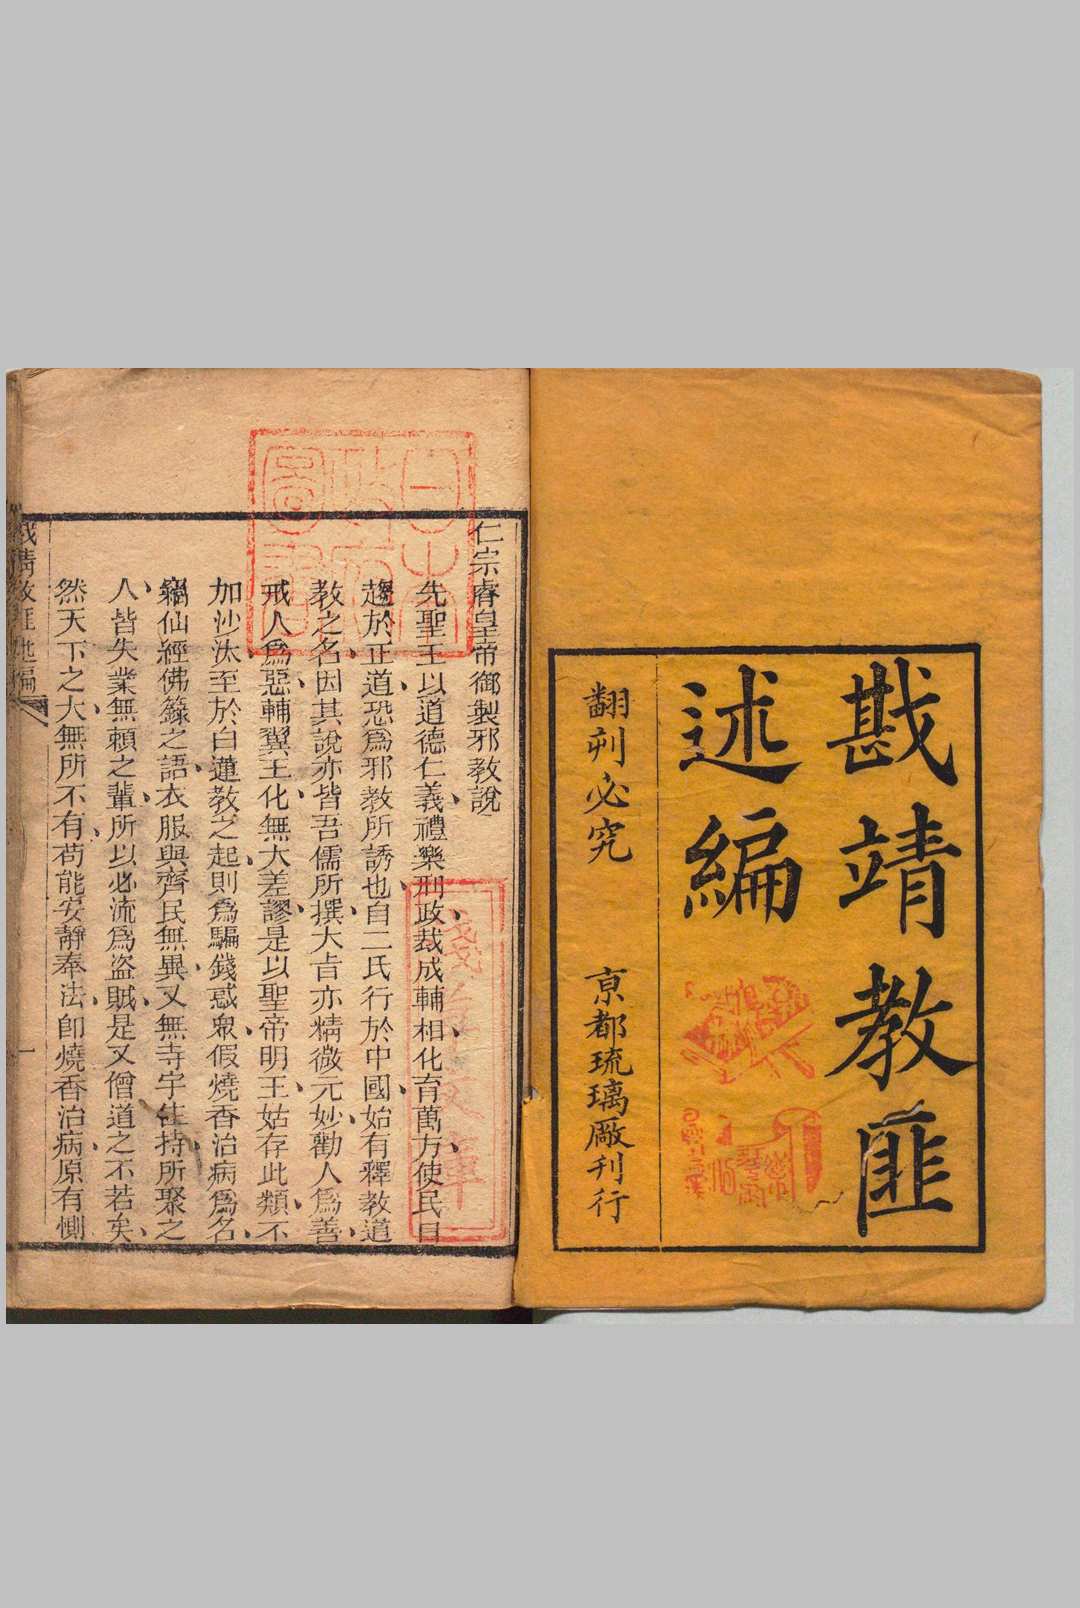 戡靖教匪
述編
翻刋必究
京都琉璃厰刊行
仁宗睿皇帝御製邪教說
先聖王以道德仁義禮樂刑政裁成輔相化育萬方使民日
趨於正道恐爲邪教所誘也自二氏行於中國始有釋教道
教之名因其說亦皆吾儒所撰大旨亦精微元妙勸人爲善
戒人爲惡輔翼王化無大差謬是以聖帝明王姑存此類不
加沙汰至於白蓮教之起則爲騙錢惑衆假燒香治病爲名
竊仙經佛籙之語衣服與齊民無異又無寺宇住持所聚之
人皆失業無賴之輩所以必流爲盜賊是又僧道之不若矣
然天下之大無所不有苟能安靜奉法卽燒香治病原有惻
戡靖教匪述編
一